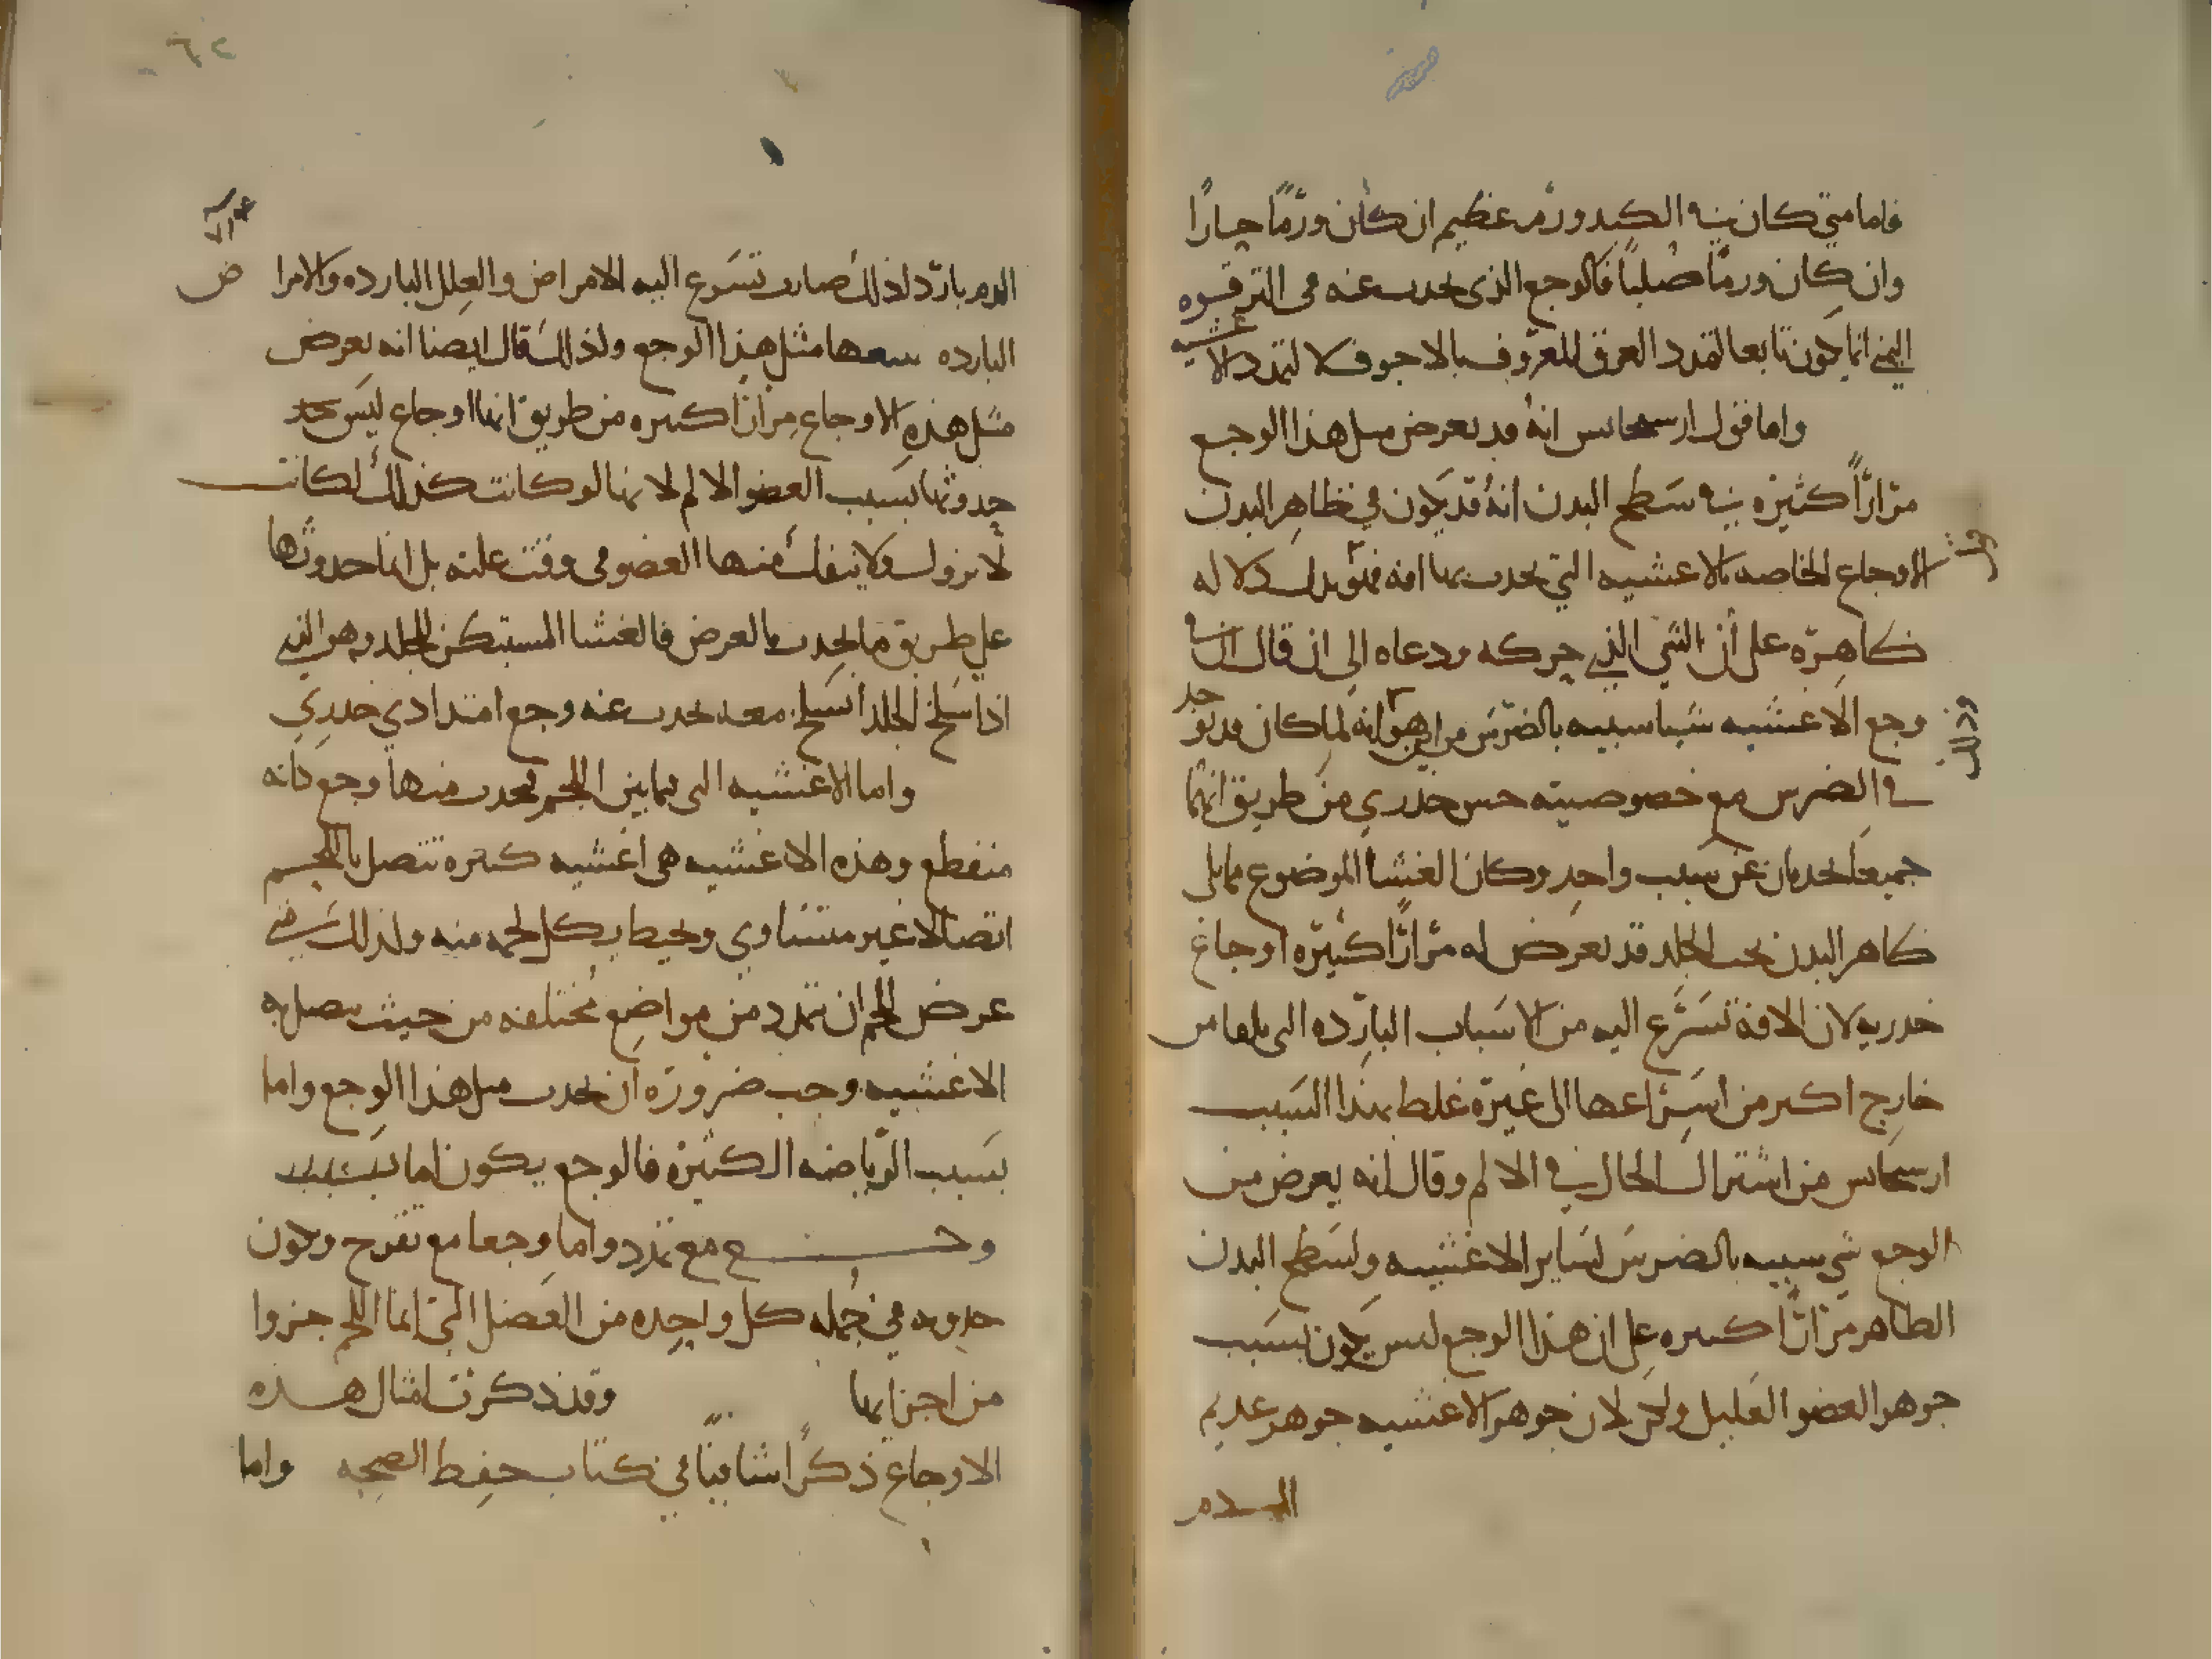 فاما متى كان في الكبد ورم عظيم ان كان ورمًا حارًا
وان كان ورمًا صلبًا فالوجع الذى يحدث عنه فى الترقوه
اليمنى انما يكون تابعا لتمدد العرق المعروف بالاجوف لا لتمدد الاغشيه
واما قول ارسحانس انه قد يعرض مثل هذا الوجع
مرارًا كثيره في سطح البدن انه قد يكون في ظاهر البدن
الاوجاع الخاصه بالاغشيه التي يحدث بها افه فتو يدل دلاله
ظاهره على أن الشي الذي حركه ودعاه الى ان قال ان في
وجع الاغشيه شيا شبيه بالضرس من هو انه لما كان قد يوجد
في الضرس مع خصوصيته حس خدري من طريق انهما
جميعا يحدثان عن سبب واحد وكان الغشا الموضوع مما يلى
ظاهر البدن تحت الجلد قد يعرض له مرارًا كثيره اوجاع
خدريه لان الافة تسرع اليه من الاسباب البارده التى يلقا من
خارج اكثر من اسراعها الى غيره غلط بهذا السبب
ارسحانس من اشتراك الحال في الالم وقال انه يعرض من
الوجع شي شبيه بالضرس لساير الاغشيه ولسطح البدن
الظاهر مرارًا كثيره على ان هذا الوجع ليس يكون بسبب
جوهر العضو العليل ولكن لان جوهر الاغشيه جوهر عديم
الدم
الدم بارد لذلك صارت تسرع اليه الامراض والعلل البارده والامراض
البارده يتبعها مثل هذا الوجع ولذلك قال ايضا انه يعرض
مثل هذه الاوجاع مرارًا كثيره من طريق انها اوجاع ليس
حدوثها بسبب العضو الالم لانها لو كانت كذلك لكانت
لا تزول ولا ينفك منها العضو فى وقت علته بل انما حدوثها
على طريق ما يحدث بالعرض فالغشا المستبطن للجلد وهو الذي
اذا سلخ الجلد انسلخ معه يحدث عنه وجع امتدادي خدري
واما الاغشيه التى فيما بين اللحم فيحدث منها وجع كانه
منقطع وهذه الاغشيه هى اغشيه كثيره تتصل باللحم
اتصالا غير متساوي وتحيط بكل لحمه منه ولذلك متى
عرض للحم ان تمدد من مواضع مختلفه من حيث يتصل به
الاغشيه وجب ضروره ان يحدث مثل هذا الوجع واما
بسبب الرياضه الكثيره فالوجع يكون اما بسبب
وجع مع تمدد واما وجعا مع تقرح ويكون
حدوثه في جمله كل واحده من العضل التى انما اللحم جزوا
من اجزايها وقد ذكرت امثال هذه
الاوجاع ذكرًا شافيًا في كتاب حفظ الصحه واما